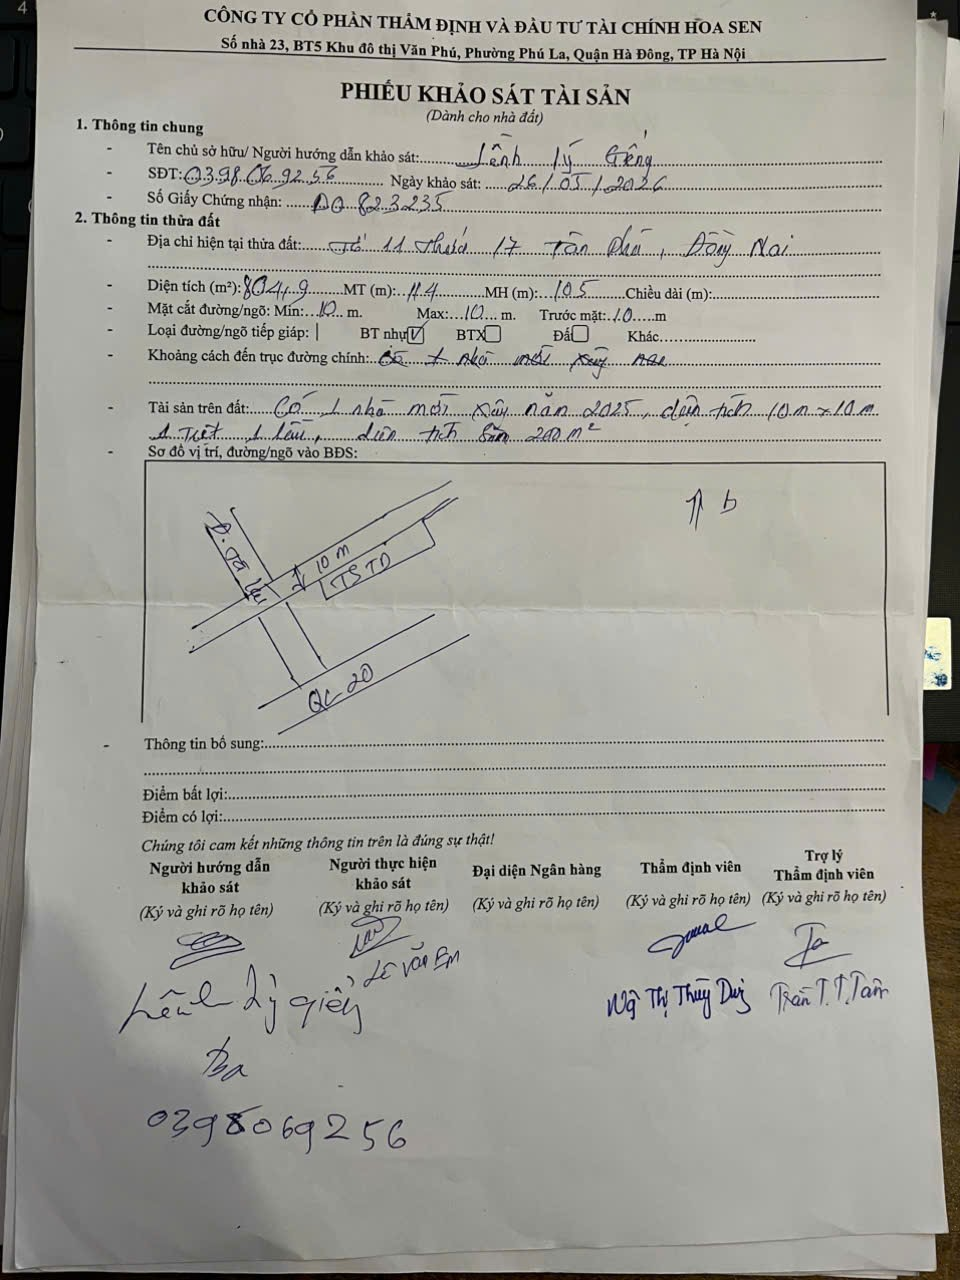 CÔNG TY CỔ PHẦN THẨM ĐỊNH VÀ ĐẦU TƯ TÀI CHÍNH HOA SEN
Số nhà 23, BT5 Khu đô thị Văn Phú, Phường Phú La, Quận Hà Đông, TP Hà Nội
PHIẾU KHẢO SÁT TÀI SẢN
(Dành cho nhà đất)
1. Thông tin chung
- Tên chủ sở hữu/ Người hướng dẫn khảo sát: Lềnh Lý Giểng
- SĐT: 0398069256 Ngày khảo sát: 26/05/2026
- Số Giấy Chứng nhận: DQ 823235
2. Thông tin thửa đất
- Địa chỉ hiện tại thửa đất: Tổ 11 thửa 17 Tân Phú, Đồng Nai
- Diện tích (m²): 804,9 MT (m): 11.4 MH (m): 10.5 Chiều dài (m):
- Mặt cắt đường/ngõ: Min: 10 m. Max: 10 m. Trước mặt: 10 m
- Loại đường/ngõ tiếp giáp: BT nhựa BTX Đất Khác
- Khoảng cách đến trục đường chính: nhà mới xây
- Tài sản trên đất: Có 1 nhà mới xây năm 2025, diện tích 10m x 10m
1 trệt 1 lầu, diện tích sàn 200m²
- Sơ đồ vị trí, đường/ngõ vào BĐS:
b
10 m
TSTD
QL 20
- Thông tin bổ sung:
Điểm bất lợi:
Điểm có lợi:
Chúng tôi cam kết những thông tin trên là đúng sự thật!
Người hướng dẫn khảo sát Người thực hiện khảo sát Đại diện Ngân hàng Thẩm định viên Trợ lý Thẩm định viên
(Ký và ghi rõ họ tên) (Ký và ghi rõ họ tên) (Ký và ghi rõ họ tên) (Ký và ghi rõ họ tên) (Ký và ghi rõ họ tên)
Lê Văn Em
Lềnh Lý Giểng
Ngô Thị Thùy Trần T.T.Tâm
0398069256